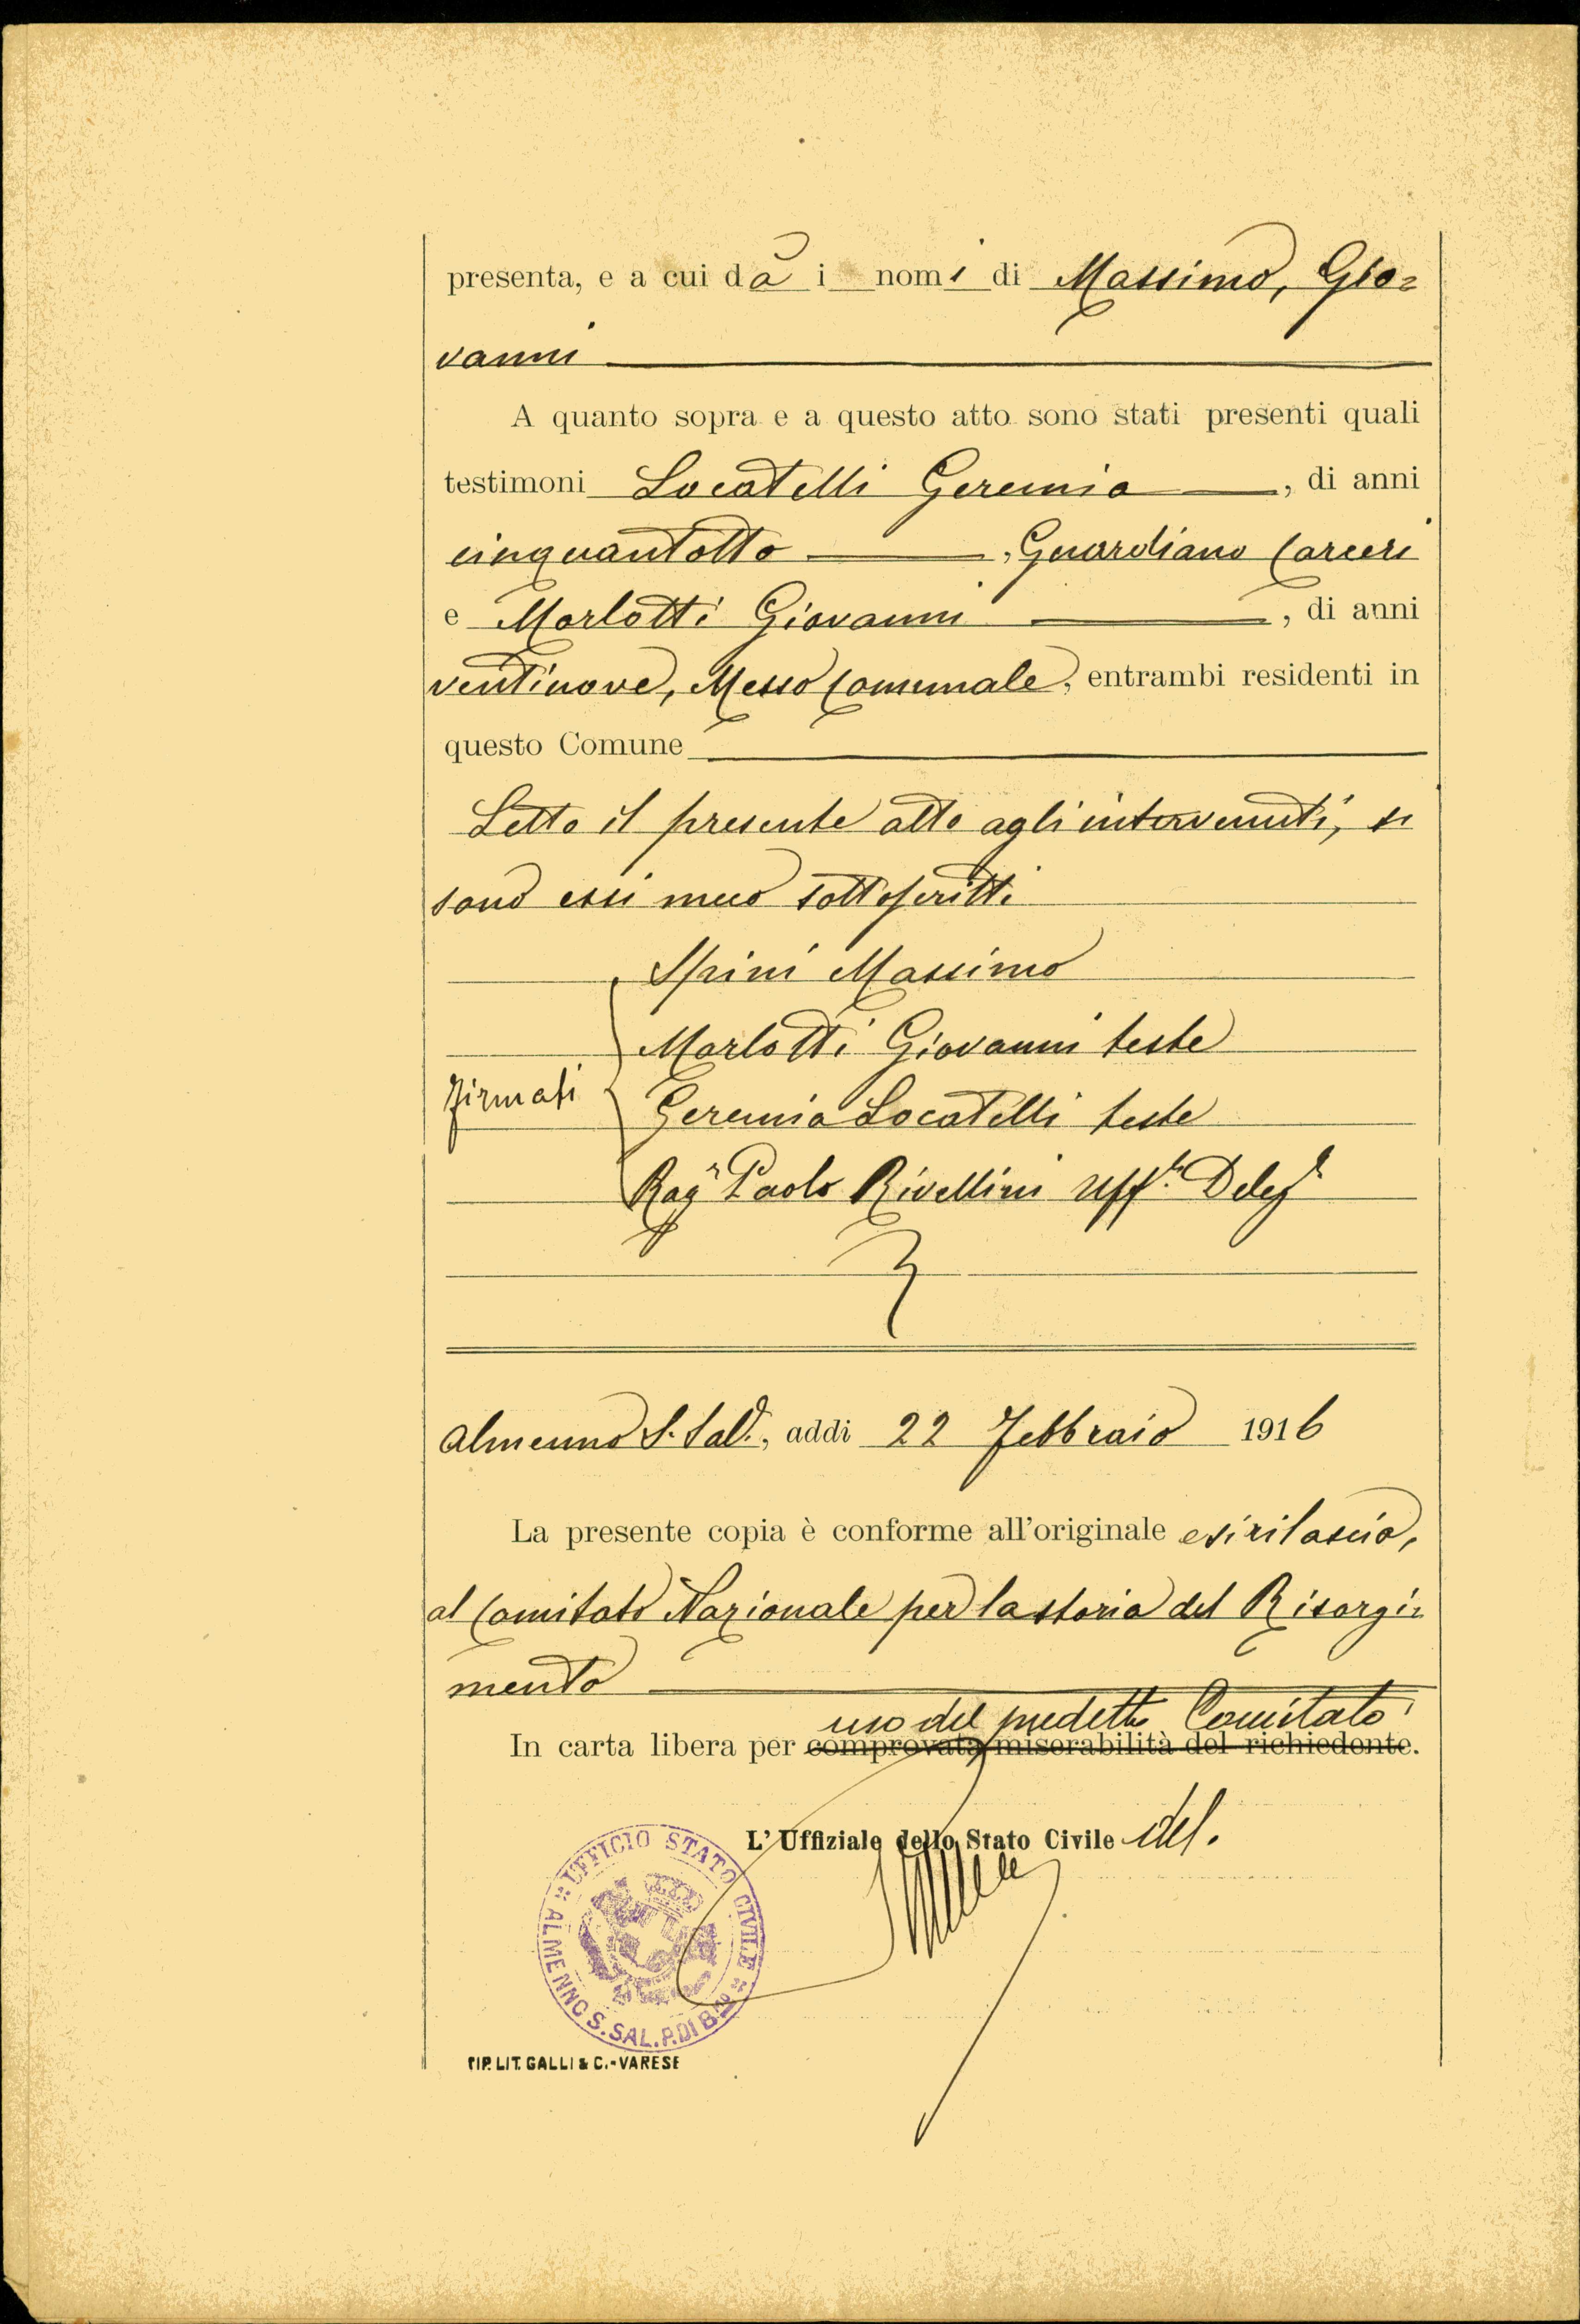 presenta, e a cui dà i nomi di Massimo, Gio=
vanni
A quanto sopra e a questo atto sono stati presenti quali
testimoni Locatelli Geremia, di anni
cinquantotto, Guardiano Carceri
e Morlotti Giovanni, di anni
ventinove, Messo Comunale, entrambi residenti in
questo Comune
Letto il presente atto agli intervenuti, si
sono essi meco sottoscritti
Spini Massimo
Morlotti Giovanni teste
firmati
Geremia Locatelli teste
Ragr Paolo Rivellini Uff.le Delegto
Almenno S. Salv., addi 22 Febbraio 1916
La presente copia è conforme all'originale e si rilascia,
al Comitato Nazionale per la storia del Risorgi=
mento
uso del predetto Comitato
In carta libera per comprovata miserabilità del richiedente.
L'Uffiziale dello Stato Civile del.
UFFICIO STATO CIVILE
ALMENNO S. SAL. P. DI B.
TIP. LIT. GALLI & C. - VARESE